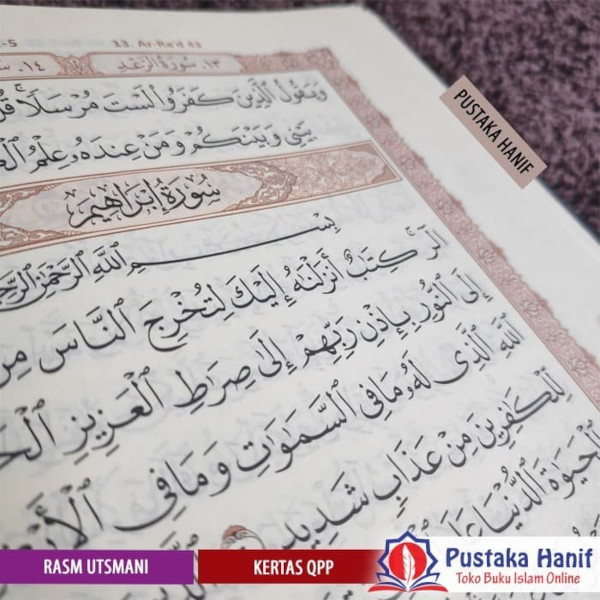 -5 13. Ar-Ra'd 43
١٣. سُورَةُ الرَّعْد
١٤.
وَيَقُولُ الَّذِينَ كَفَرُوا لَسْتَ مُرْسَلًا ۚ قُلْ
بَيْنِي وَبَيْنَكُمْ وَمَنْ عِندَهُ عِلْمُ
سُورَةُ إِبْرَاهِيمَ
بِسْمِ اللَّهِ الرَّحْمَٰنِ الرَّحِيمِ
الٓر كِتَٰبٌ أَنزَلْنَٰهُ إِلَيْكَ لِتُخْرِجَ النَّاسَ مِنَ
إِلَى النُّورِ بِإِذْنِ رَبِّهِمْ إِلَىٰ صِرَٰطِ الْعَزِيزِ
اللَّهِ الَّذِي لَهُۥ مَا فِي السَّمَٰوَٰتِ وَمَا فِي
لِلْكَٰفِرِينَ مِنْ عَذَابٍ شَدِيدٍ
الْحَيَوٰةَ الدُّنْيَا
PUSTAKA HANIF
RASM UTSMANI
KERTAS QPP
Pustaka Hanif
Toko Buku Islam Online